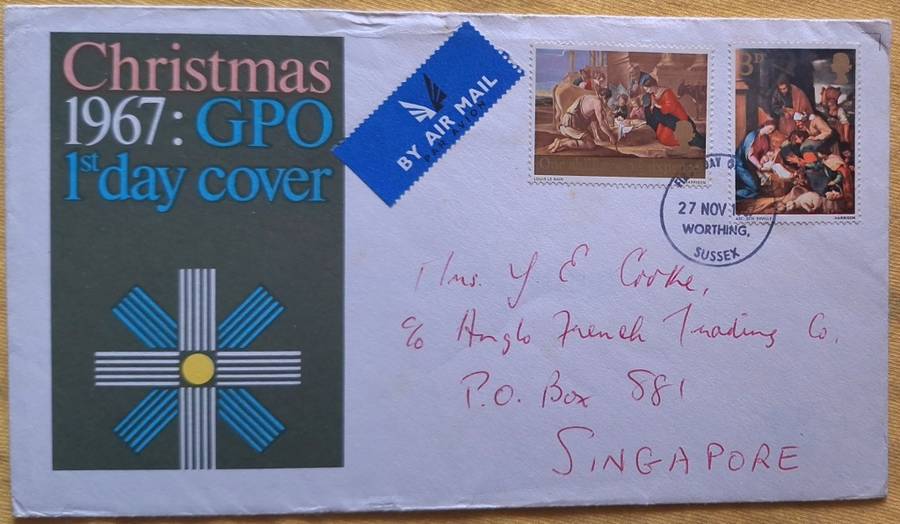 Christmas
1967: GPO
1st day cover
BY AIR MAIL
PAR AVION
LOUIS LE NAIN
HARRISON
3D
HARRISON
DAY
27 NOV
WORTHING,
SUSSEX
Mrs. Y. E Cooke,
c/o Anglo French Trading Co.
P.O. Box 881
SINGAPORE